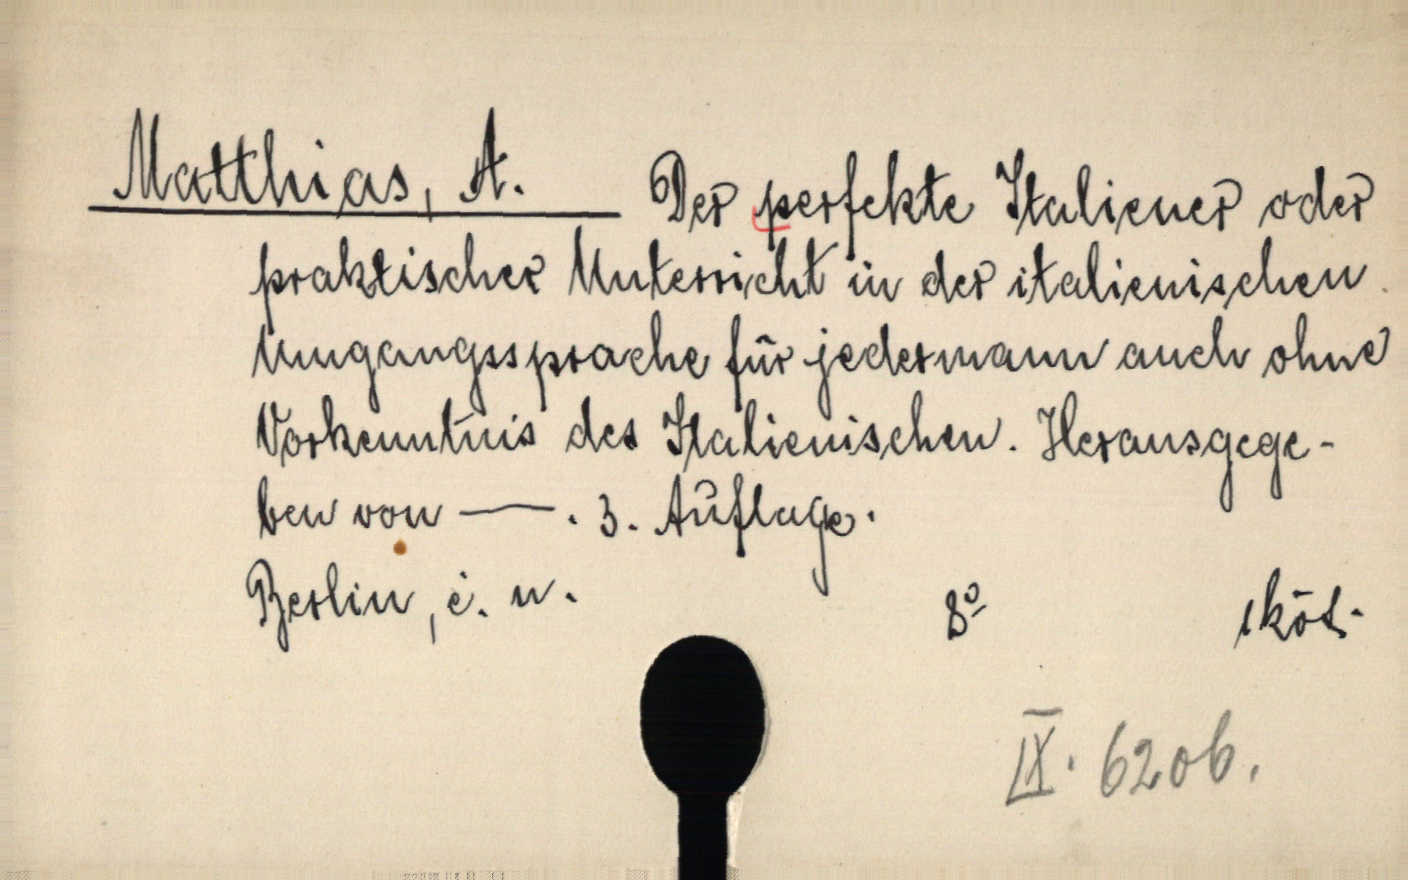 Matthias, A. Der perfekte Italiener oder
praktischer Unterricht in der italienischen
Umgangssprache für jedermann auch ohne
Vorkenntnis des Italienischen. Herausgege-
ben von —. 3. Auflage.
Berlin, é. n.
8° 1 köt.
IX. 6206.